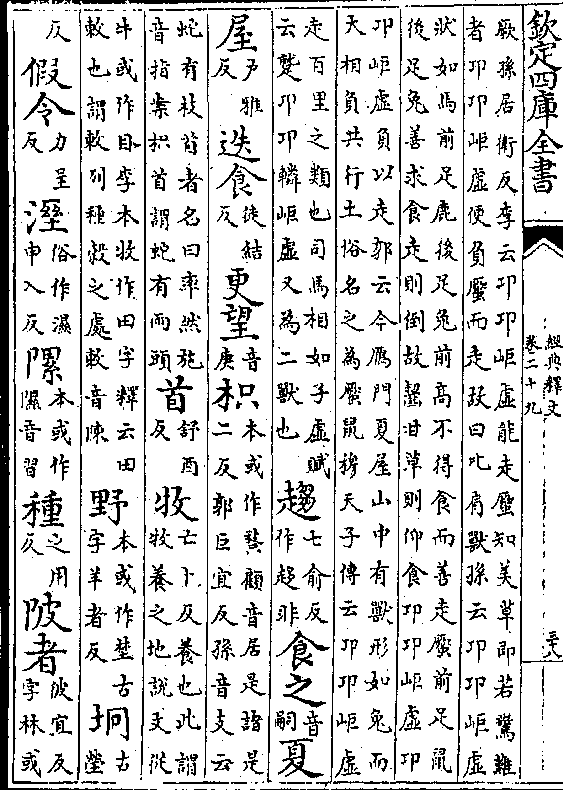 欽定四庫全書
經典釋文
卷二十九
三十八
厥孫居衛反李云邛邛岠虛能走蟨知美草即若驚難
者邛邛岠虛便負蟨而走故曰比肩獸孫云邛邛岠虛
狀如馬前足鹿後足兔前高不得食而善走蟨前足鼠
後足兔善求食走則倒故齧甘草則仰食邛邛岠虛邛
邛岠虛負以走郭云今鴈門夏屋山中有獸形如兔而
大相負共行土俗名之為蟨鼠穆天子傳云邛邛岠虛
走百里之類也司馬相如子虛賦云蹵邛邛轔岠虛又為二獸也 趨七俞反作趍非 食之音嗣 夏
屋户雅反 迭食徒結反 更望音庚 枳本或作顧音居是諸是二反郭巨宜反孫音支云
蛇有枝首者名曰率然施音指案枳首謂蛇有兩頭 首舒酉反 牧亡卜反養也此謂牧養之地說文從
牛或作目李本牧作田字釋云田敶也謂敶列種穀之處敶音陳 野本或作埜古字羊者反 坰古螢
反 假令力呈反 溼俗作濕申入反 隰本或作隰音習 種之用反 陂者彼宜反字林或